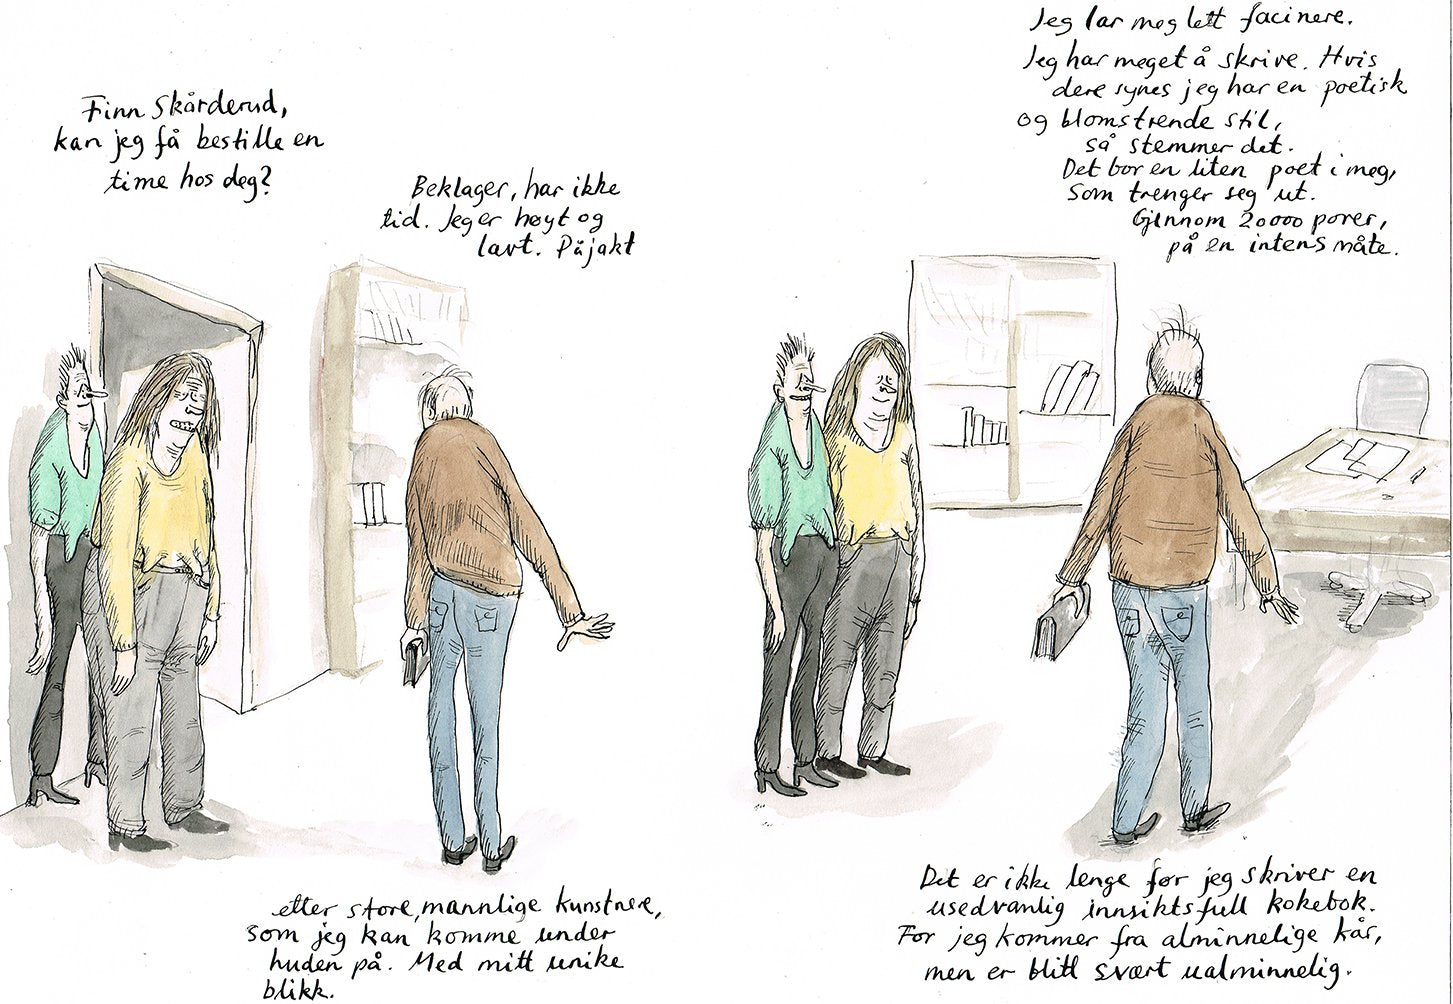 Finn Skårderud,
kan jeg få bestille en
time hos deg?
Beklager, har ikke
tid. Jeg er høyt og
lavt. På jakt
etter store, mannlige kunstnere,
som jeg kan komme under
huden på. Med mitt unike
blikk.
Jeg lar meg lett facinere.
Jeg har meget å skrive. Hvis
dere synes jeg har en poetisk
og blomstrende stil,
så stemmer det.
Det bor en liten poet i meg,
som trenger seg ut.
Gjennom 20000 porer,
på en intens måte.
Det er ikke lenge før jeg skriver en
usedvanlig innsiktsfull kokebok.
For jeg kommer fra alminnelige kår,
men er blitt svært ualminnelig.